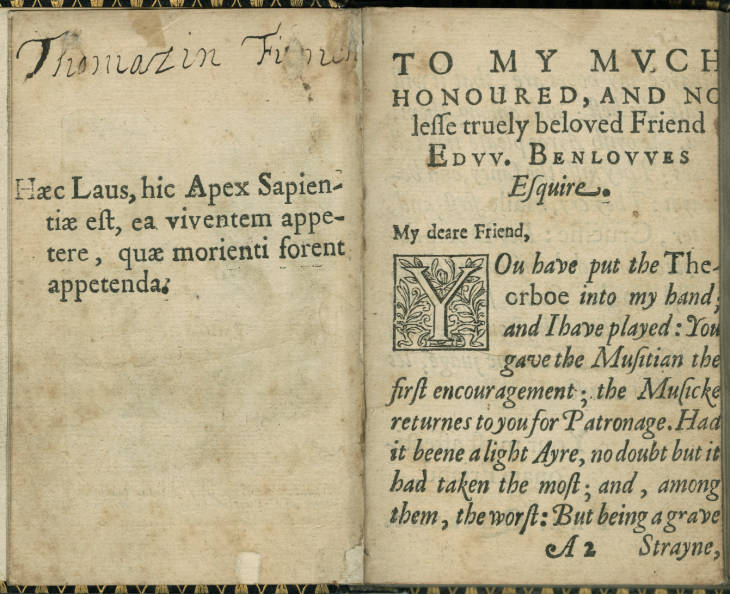 Thomazin
Hæc Laus, hic Apex Sapien-
tiæ eſt, ea viventem appe-
tere, quæ morienti forent
appetenda.
TO MY MVCH
HONOURED, AND NO
leſſe truely beloved Friend
EDVV. BENLOVVES
Eſquire.
My deare Friend,
YOu have put the The-
orboe into my hand;
and I have played: You
gave the Muſitian the
firſt encouragement; the Muſicke
returnes to you for Patronage. Had
it beene a light Ayre, no doubt but it
had taken the moſt; and, among
them, the worſt: But being a grave
A 2 Strayne,